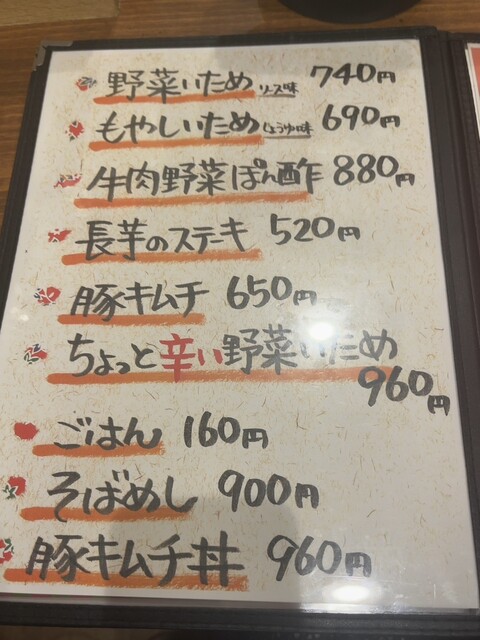 野菜いため ソース味 740円
もやしいため しょうゆ味 690円
牛肉野菜ぽん酢 880円
長芋のステーキ 520円
豚キムチ 650円
ちょっと辛い野菜いため
960円
ごはん 160円
そばめし 900円
豚キムチ丼 960円